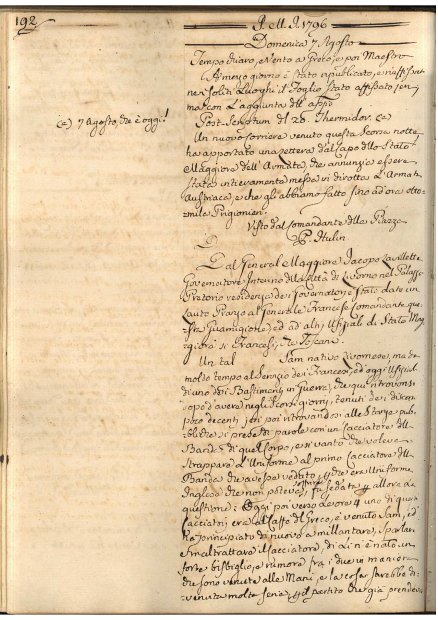 192
A. M. D. 1796
Domenica 7 Agosto
Tempo chiaro, e Vento a Greco, e poi Maestro
A mezzo giorno è stato publicato, e
nei soliti Luoghi il Foglio stato affisso
ma con L'aggiunta
Post-Scriptum del 20. Thermidor. (a)
(a) 7 Agosto, che è oggi!
Un nuovo Corriere venuto questa scorsa notte
ha apportato una Lettera dal Capo dello Stato
Maggiore dell'Armata, che annunzia essere
stata interamente messa in dirotta L'Armata
Austriaca, e che gli abbiamo fatto fino ad ora otto
mile Prigionieri.
Visto dal Comandante della Piazza
P. Hulin
Dal General Maggiore Jacopo Lavillette
Governatore Interino della Città di Livorno nel Palazzo
Pretorio residenza dei Governatori è stato dato un
Lauto Pranzo al Generale Francese Comandante
Guarnigione, ed ad altri Ufiziali di Stato Mag
giore sì Francesi, che Toscani.
Un tal Sam nativo Livornese, ma
mol to tempo al Servizio dei Francesi, ed oggi Ufizial
di uno dei Bastimenti in Guerra, che qui ritrovansi
dopo d'avere negli scorsi giorni, tenuti dei discorsi
poco decenti, ieri poi ritrovandosi alle Stanze pub
bliche si prese di parole con un Cacciatore
Bande di quel Corpo, e si vantò che voleva
strappare L'Uniforme al primo Cacciatore
Banda che avesse veduto, che era Uniforme
Inglese che non poteva soffrire, fu sedata allora la
questione: Oggi poi verso le ore 4 uno di questi
Cacciatori, era al Caffè del Greco, è venuto Sam, ed
ha principiato di nuovo a millantare, sparlare
strapazzare il Cacciatore, di Lì n'è nato un
forte bisbiglio, e rumore fra i due in maniera
che sono venuti alle Mani, e la cosa sarebbe di
venuta molto seria, il partito che già prendeva